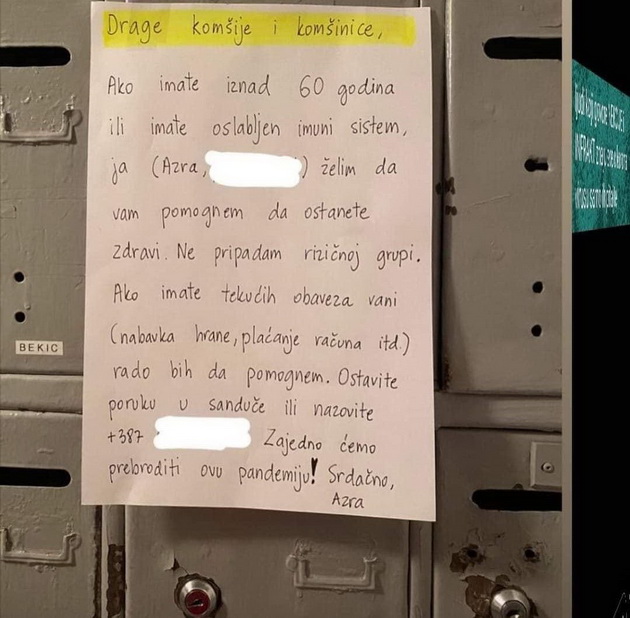 Drage komšije i komšinice,
Ako imate iznad 60 godina
ili imate oslabljen imuni sistem,
ja (Azra, ) želim da
vam pomognem da ostanete
zdravi. Ne pripadam rizičnoj grupi.
Ako imate tekućih obaveza vani
(nabavka hrane, plaćanje računa itd.)
rado bih da pomognem. Ostavite
poruku u sanduče ili nazovite
+387 Zajedno ćemo
prebroditi ovu pandemiju! Srdačno,
Azra
BEKIC